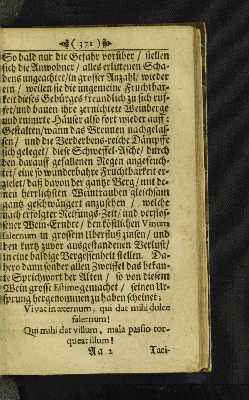 ( 371 )
So bald nur die Gefahr vorüber / stellen
sich die Anwohner / alles erlittenen Scha-
dens ungeachtet / in grosser Anzahl / wieder
ein / weilen sie die ungemeine Fruchtbar-
keit dieses Gebürges freundlich zu sich ruf-
fet / und bauen ihre zernichtete Weinberge
und ruinirte Häuser also fort wieder auff:
Gestalten / wann das Brennen nachgelas-
sen / und die Verderbens-reiche Dämpffe
sich geleget / diese Schweffel-Asche / durch
den darauff gefallenen Regen angefeuch-
tet / eine so wunderbahre Fruchtbarkeit er-
zielet / daß davon der gantze Berg / mit de-
nen herrlichsten Weintrauben gleichsam
gantz geschwängert anzusehen / welche
nach erfolgter Reiffungs-Zeit / und verflos-
sener Wein-Erndte / den köstlichen Vinum
Falernum in grossem Uberfluß zinsen / und
den kurtz zuvor ausgestandenen Verlust /
in eine baldige Vergessenheit stellen. Da-
hero dann sonder allen Zweiffel das bekan-
te Sprichwort der Alten / so von diesem
Wein grosse Estime gemachet / seinen Ur-
sprung hergenommen zu haben scheinet:
Vivat in æternum, qui dat mihi dulce
falernum!
Qui mihi dat villum, mala passio tor-
queat illum!
Aa 2 Taci-